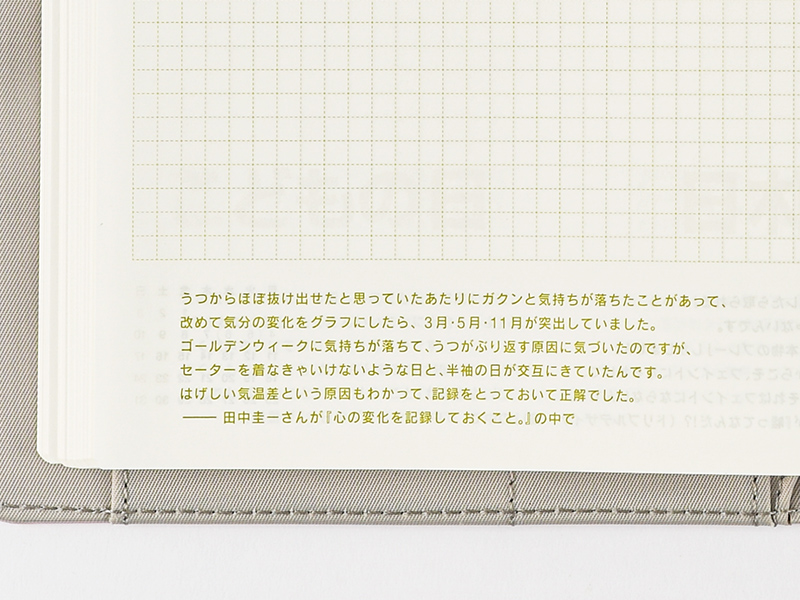 うつからほぼ抜け出せたと思っていたあたりにガクンと気持ちが落ちたことがあって、
改めて気分の変化をグラフにしたら、3月・5月・11月が突出していました。
ゴールデンウィークに気持ちが落ちて、うつがぶり返す原因に気づいたのですが、
セーターを着なきゃいけないような日と、半袖の日が交互にきていたんです。
はげしい気温差という原因もわかって、記録をとっておいて正解でした。
—— 田中圭一さんが『心の変化を記録しておくこと。』の中で